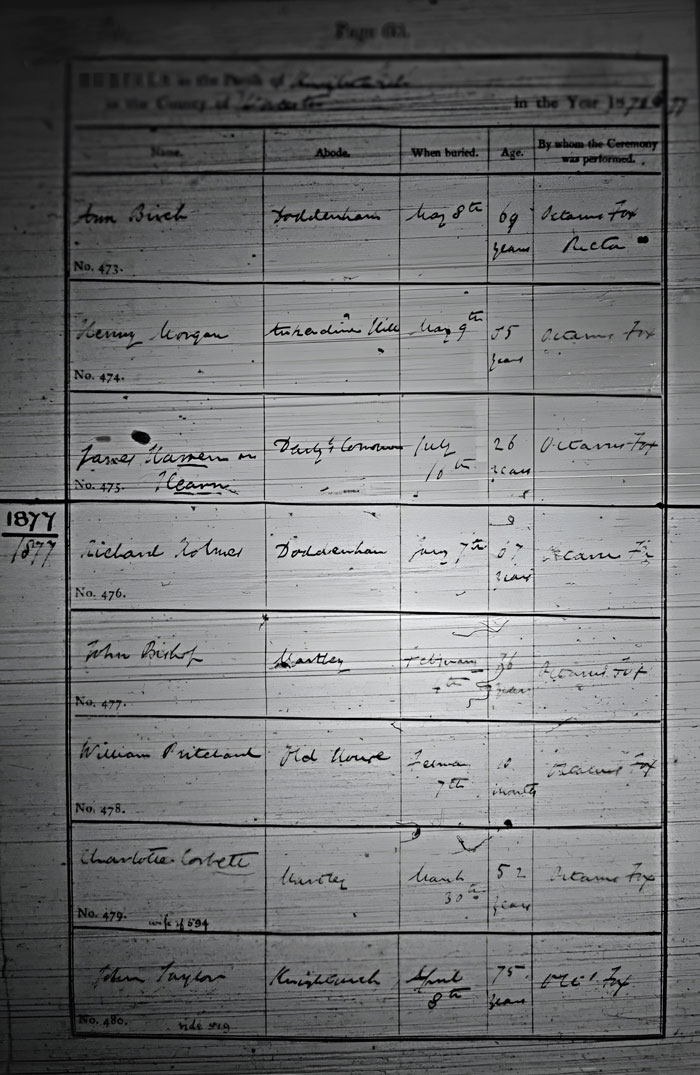 Page 60.
BURIALS in the Parish of Knightwick
in the County of Worcester in the Year 1876 & 77
Name. Abode. When buried. Age. By whom the Ceremony was performed.
Ann Birch Doddenham May 8th 69 Octavius Fox
years Rector
No. 473.
Henry Morgan Ankerdine Hill May 9th 55 Octavius Fox
years
No. 474.
James Hannen or July 26 Octavius Fox
No. 475. Hearn 10th years
1877
1877 Richard Holmes Doddenham Jany 7th 67 Octavius Fox
years
No. 476.
John Bishop Martley February 36 Octavius Fox
4th years
No. 477.
William Pritchard Old House 10 Octavius Fox
7th months
No. 478.
Charlotte Corbett Martley March 52 Octavius Fox
30th years
No. 479. wife of 594
John Taylor Knightwick April 75 Oct' Fox
8th years
No. 480. vide 519